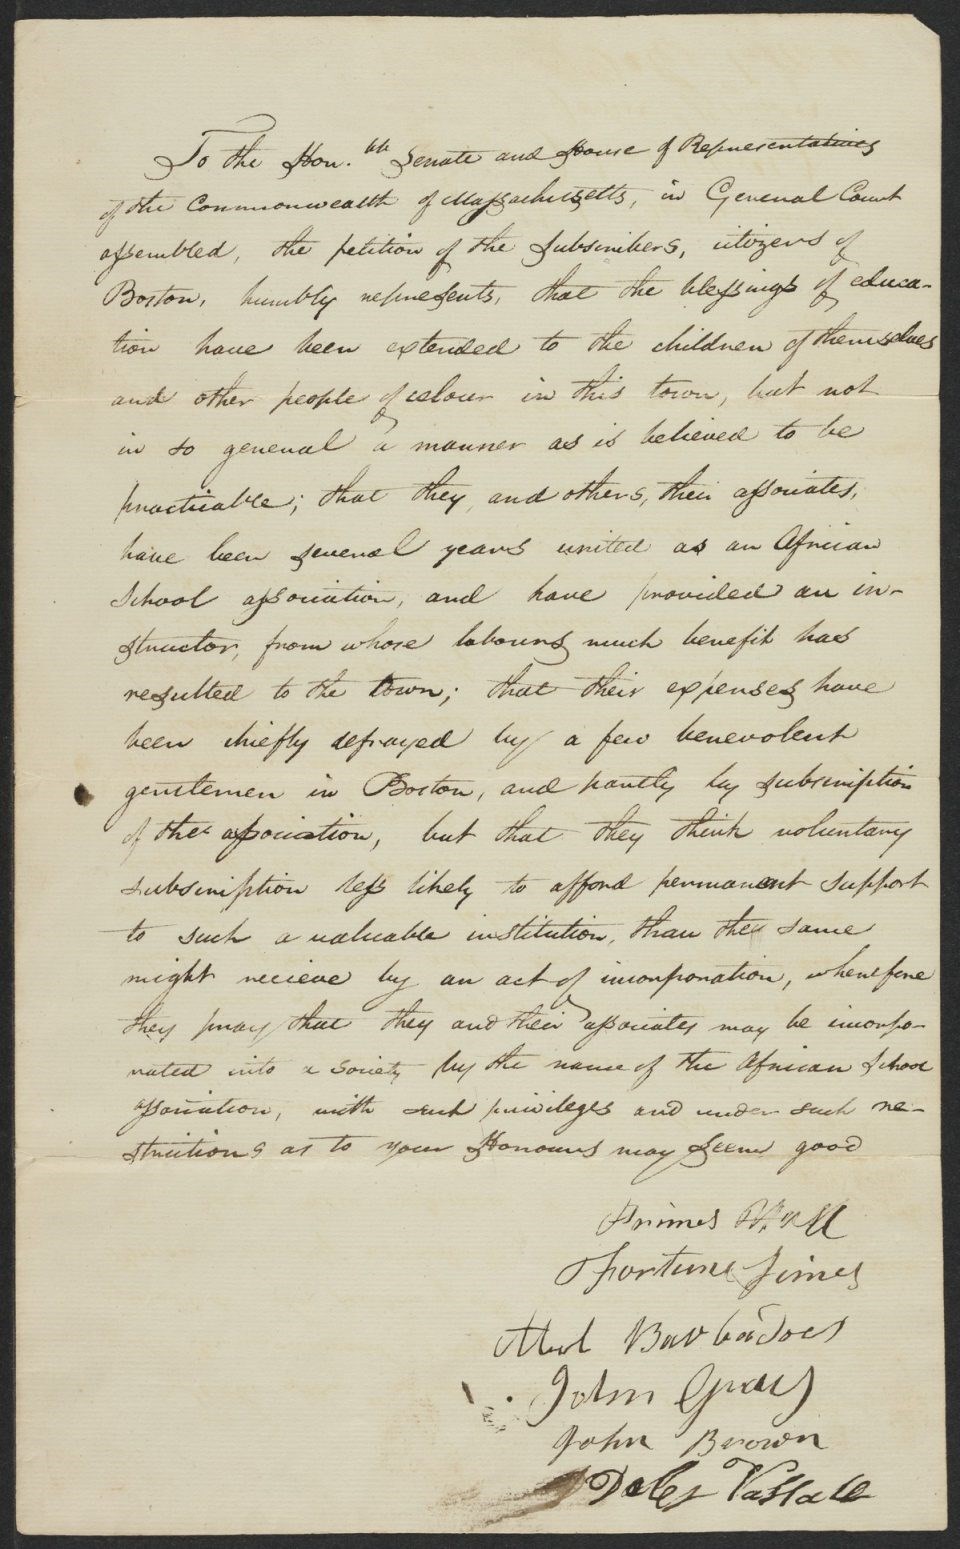 To the Hon.ble Senate and House of Representatives
of the Commonwealth of Massachusetts, in General Court
assembled, the petition of the Subscribers, citizens of
Boston, humbly represents, that the blessings of educa-
tion have been extended to the children of themselves
and other people of colour in this town, but not
in so general a manner as is believed to be
practicable; that they, and others, their associates,
have been several years united as an African
School association, and have provided an in-
structor, from whose labours much benefit has
resulted to the town; that their expenses have
been chiefly defrayed by a few benevolent
gentlemen in Boston, and partly by subscription
of the association, but that they think voluntary
subscription less likely to afford permanent support
to such a valuable institution, than the same
might recieve by an act of incorporation, wherefore
they pray that they and their associates may be incorpo-
rated into a society by the name of the African School
association, with such privileges and under such re-
strictions as to your Honours may seem good
Primes Hall
Fortune Simes
Abel Barbadoes
John Gray
John Brown
Vassall